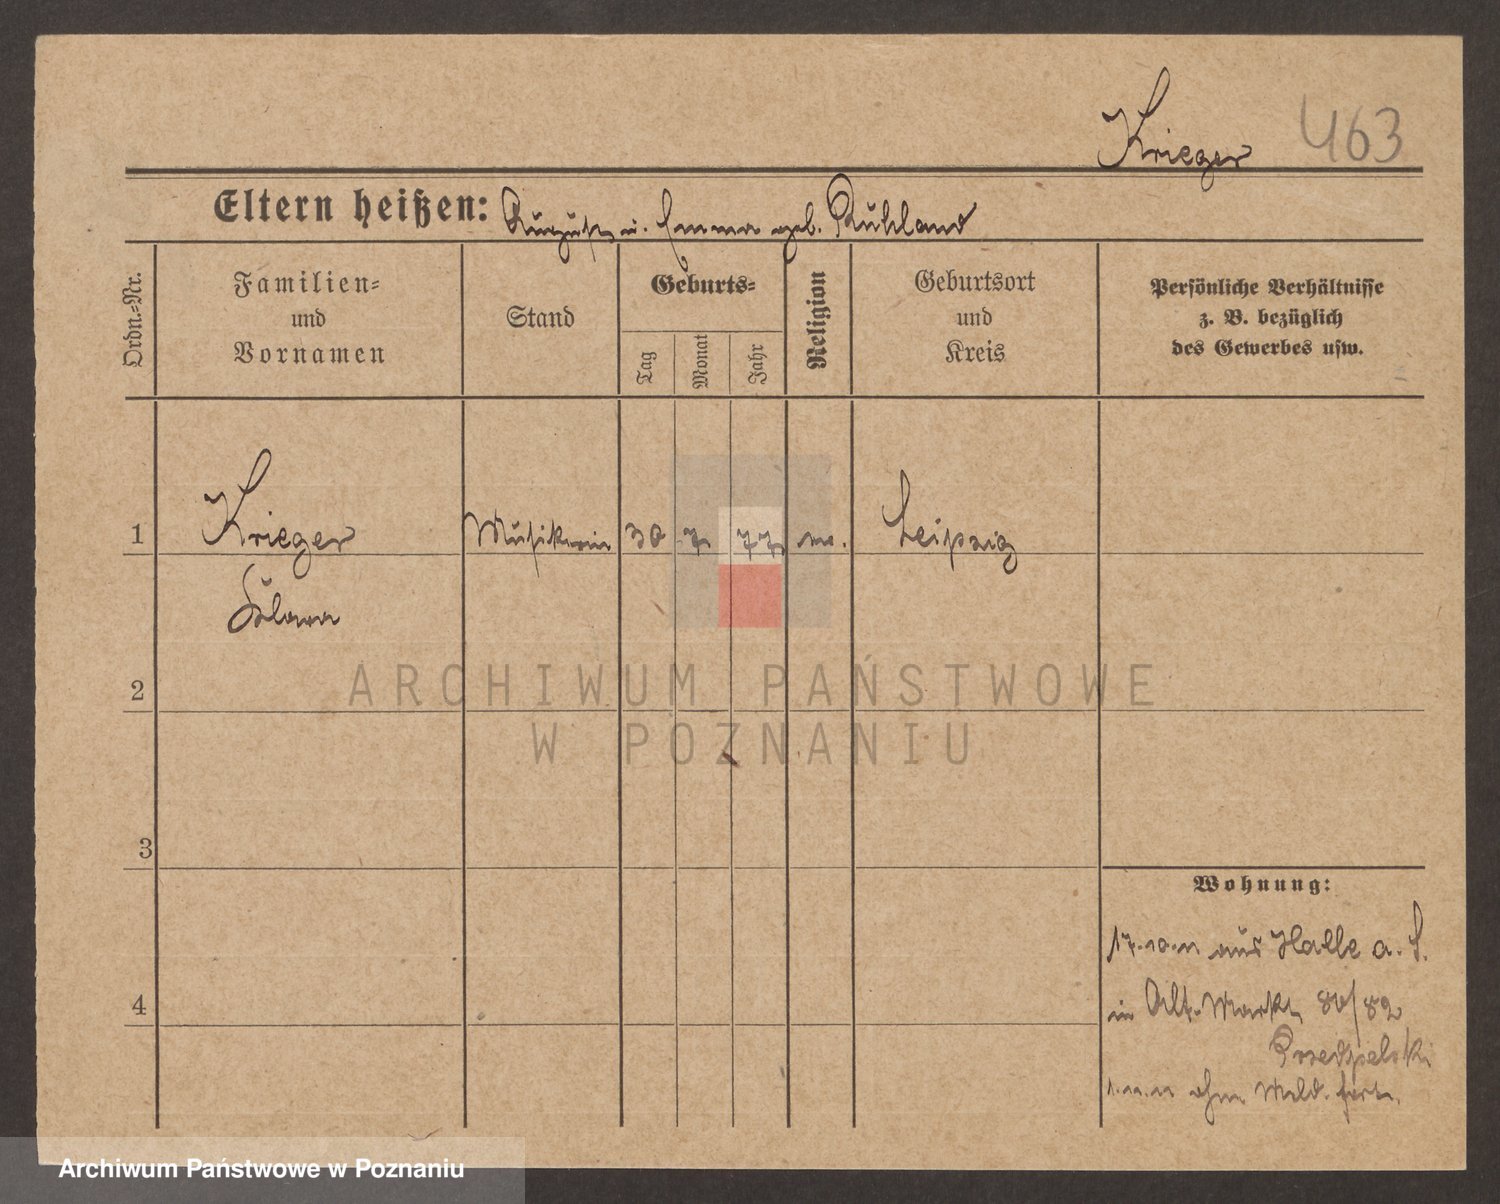 Krieger 463
Eltern heißen: August u. Emma geb. Ruhland
Ordn.-Nr.
Familien-
und
Vornamen
Stand
Geburts-
Tag
Monat
Jahr
Religion
Geburtsort
und
Kreis
Persönliche Verhältnisse
z. B. bezüglich
des Gewerbes usw.
1 Krieger Musikerin 30 7 77 Leipzig
Klara
2
ARCHIWUM PAŃSTWOWE
W POZNANIU
3
Wohnung:
17.10.11 aus Halle a. S.
4
in Alt. Markt 80/82
1.11.11 ohne Meld. fort.
Archiwum Państwowe w Poznaniu